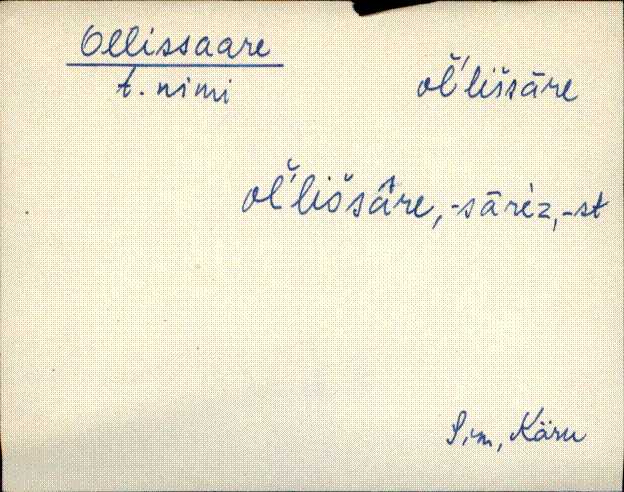 Ollissaare
t. nimi
oľ̆lišsāre
oľ̆lišsā̂re, -sārėz, -st
Sim, Käru